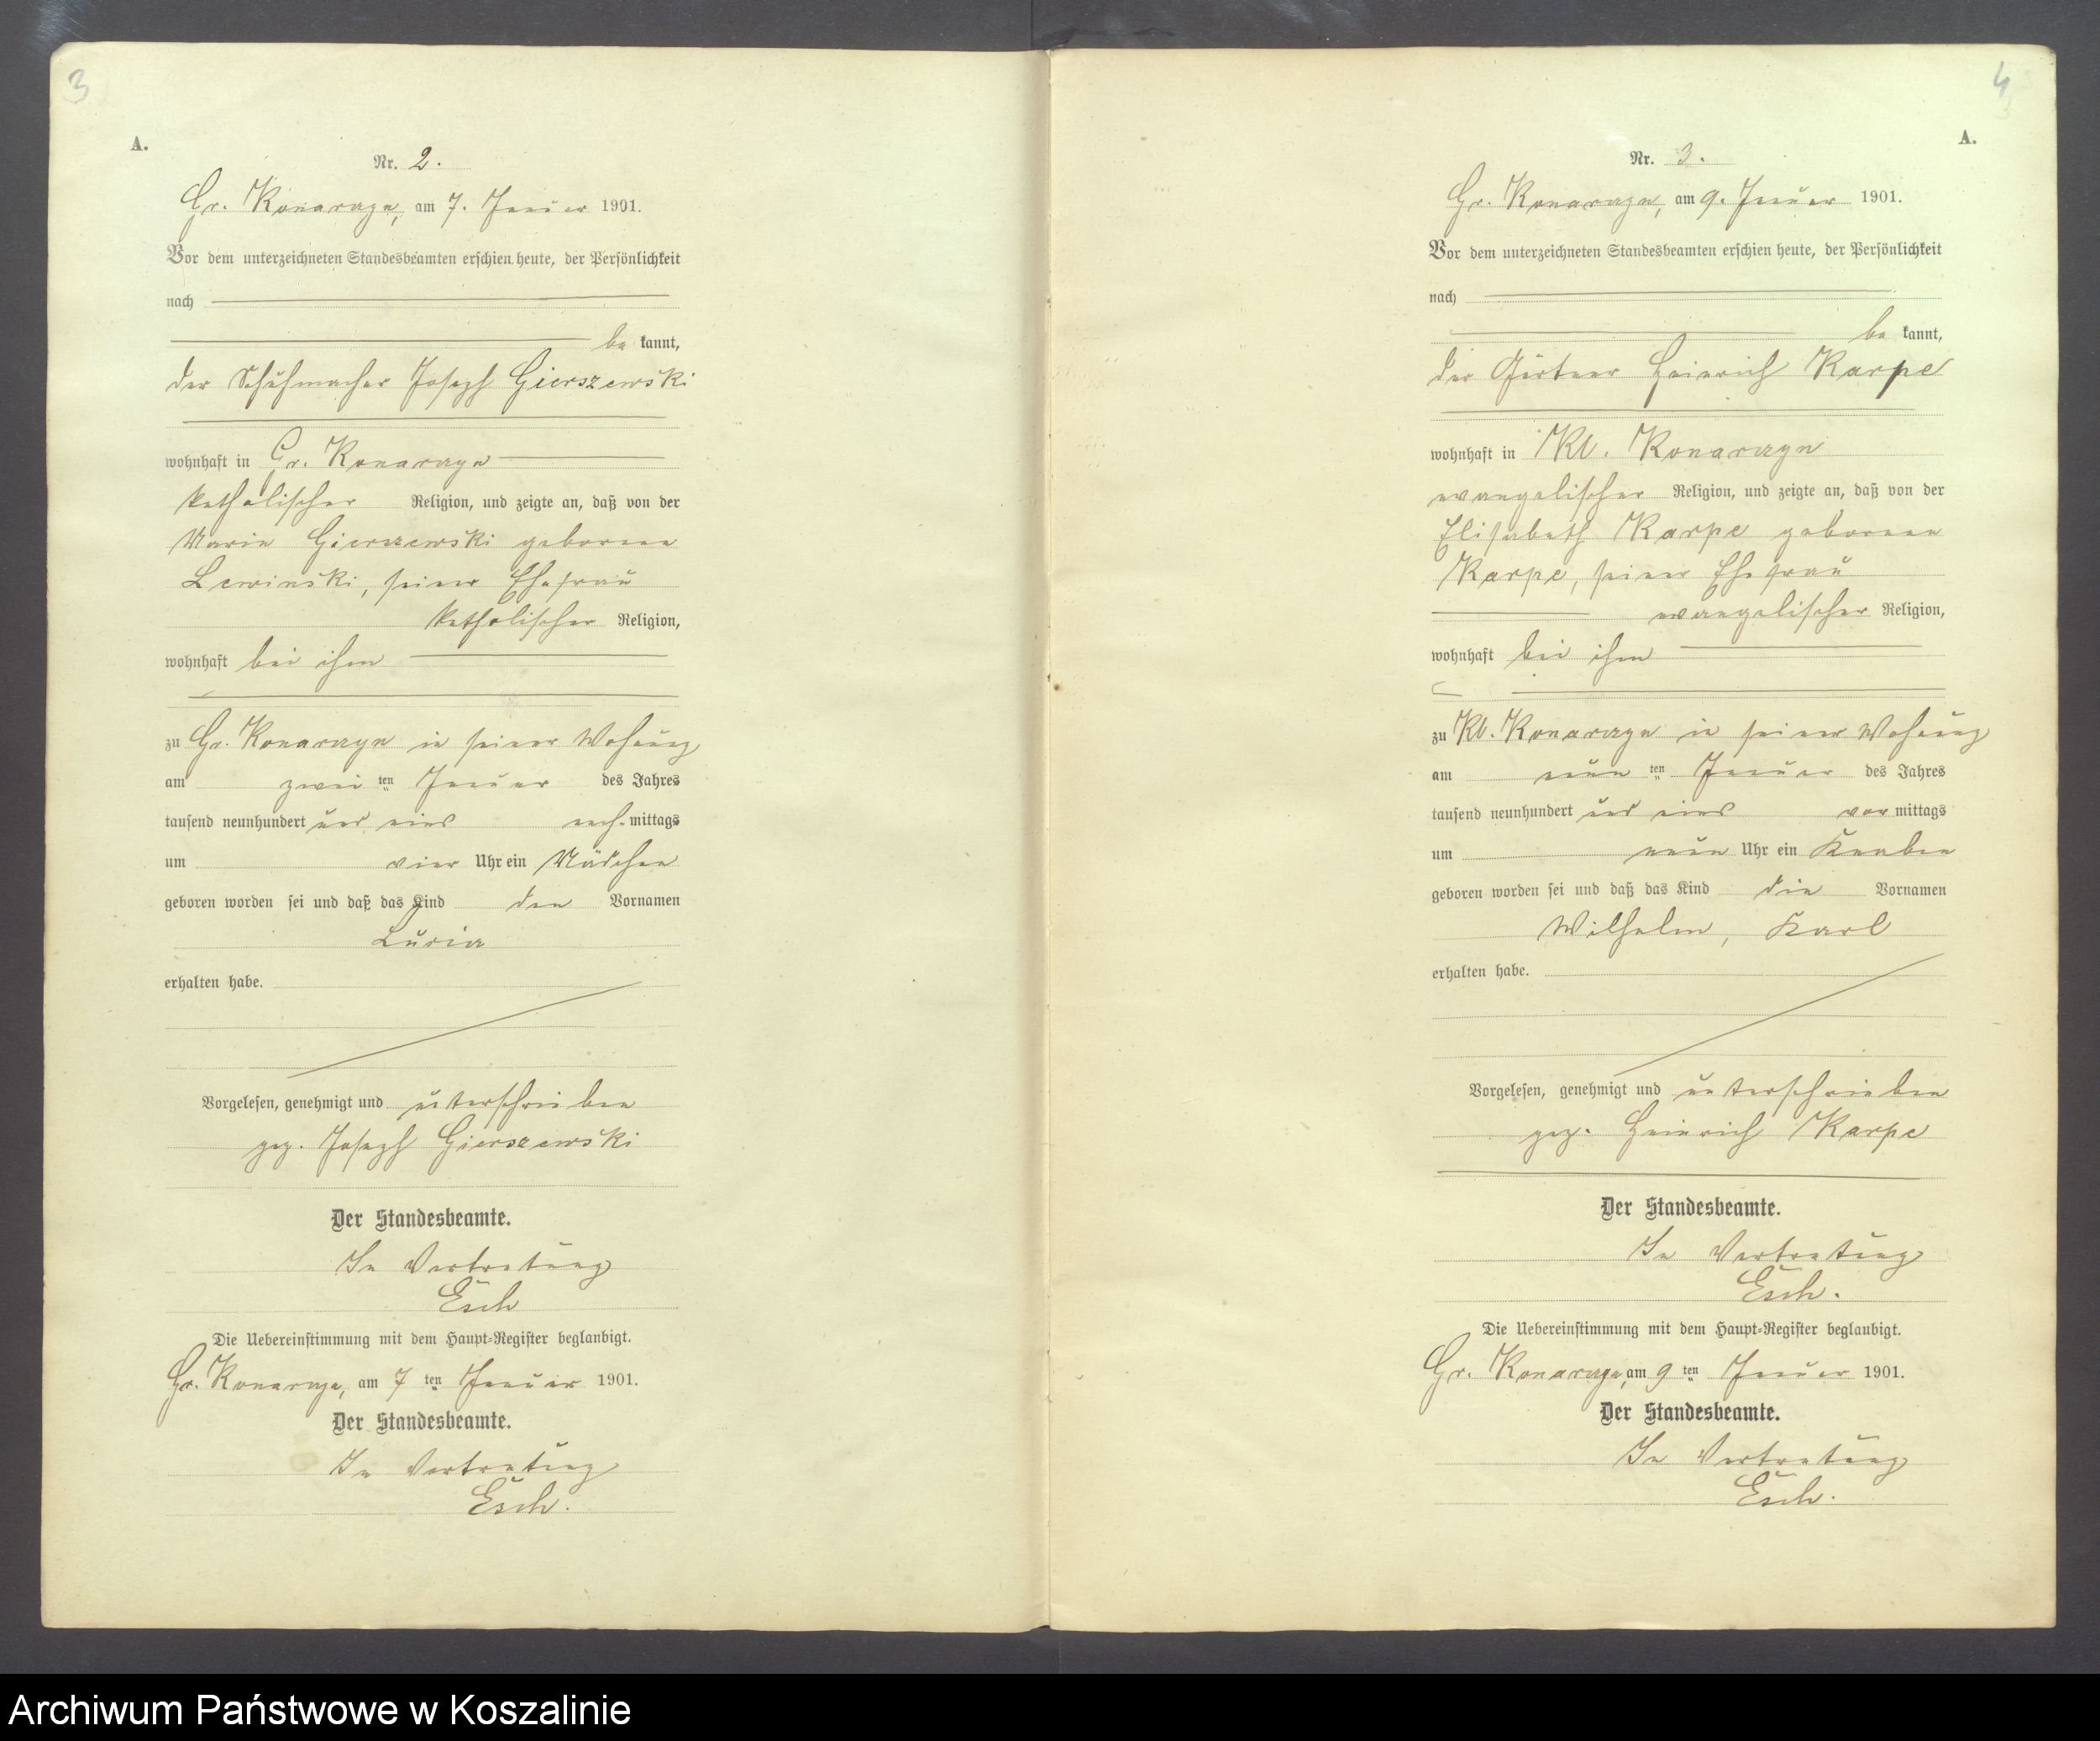 3
A.
Nr. 2.
Gr. Konarczyn, am 7. Januar 1901.
Vor dem unterzeichneten Standesbeamten erschien heute, der Persönlichkeit
nach
be kannt,
der Schuhmacher Joseph Gierszewski
wohnhaft in Gr. Konarczyn
katholischer Religion, und zeigte an, daß von der
Maria Gierszewski geborene
Lewinski, seiner Ehefrau
katholischer Religion,
wohnhaft bei ihm
zu Gr. Konarczyn in seiner Wohnung
am zwei ten Januar des Jahres
tausend neunhundert und eins nach mittags
um vier Uhr ein Mädchen
geboren worden sei und daß das Kind den Vornamen
erhalten habe.
Vorgelesen, genehmigt und unterschrieben
gez. Joseph Gierszewski
Der Standesbeamte.
In Vertretung
Esch
Die Uebereinstimmung mit dem Haupt-Register beglaubigt.
Gr. Konarczyn, am 7 ten Januar 1901.
Der Standesbeamte.
In Vertretung
Esch.
4
A.
Nr. 3.
Gr. Konarczyn, am 9. Januar 1901.
Vor dem unterzeichneten Standesbeamten erschien heute, der Persönlichkeit
nach
be kannt,
der Gärtner Heinrich Karpe
wohnhaft in Kl. Konarczyn
evangelischer Religion, und zeigte an, daß von der
Elisabeth Karpe geborene
Karpe, seiner Ehefrau
evangelischer Religion,
wohnhaft bei ihm
zu Kl. Konarczyn in seiner Wohnung
am neun ten Januar des Jahres
tausend neunhundert und eins vor mittags
um neun Uhr ein Knabe
geboren worden sei und daß das Kind die Vornamen
Wilhelm, Karl
erhalten habe.
Vorgelesen, genehmigt und unterschrieben
gez. Heinrich Karpe
Der Standesbeamte.
In Vertretung
Esch.
Die Uebereinstimmung mit dem Haupt-Register beglaubigt.
Gr. Konarczyn, am 9 ten Januar 1901.
Der Standesbeamte.
In Vertretung
Esch.
Archiwum Państwowe w Koszalinie